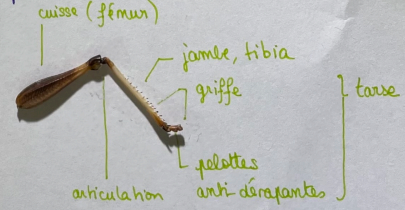 cuisse (fémur)
jambe, tibia
griffe
tarse
pelottes
anti-dérapantes
articulation